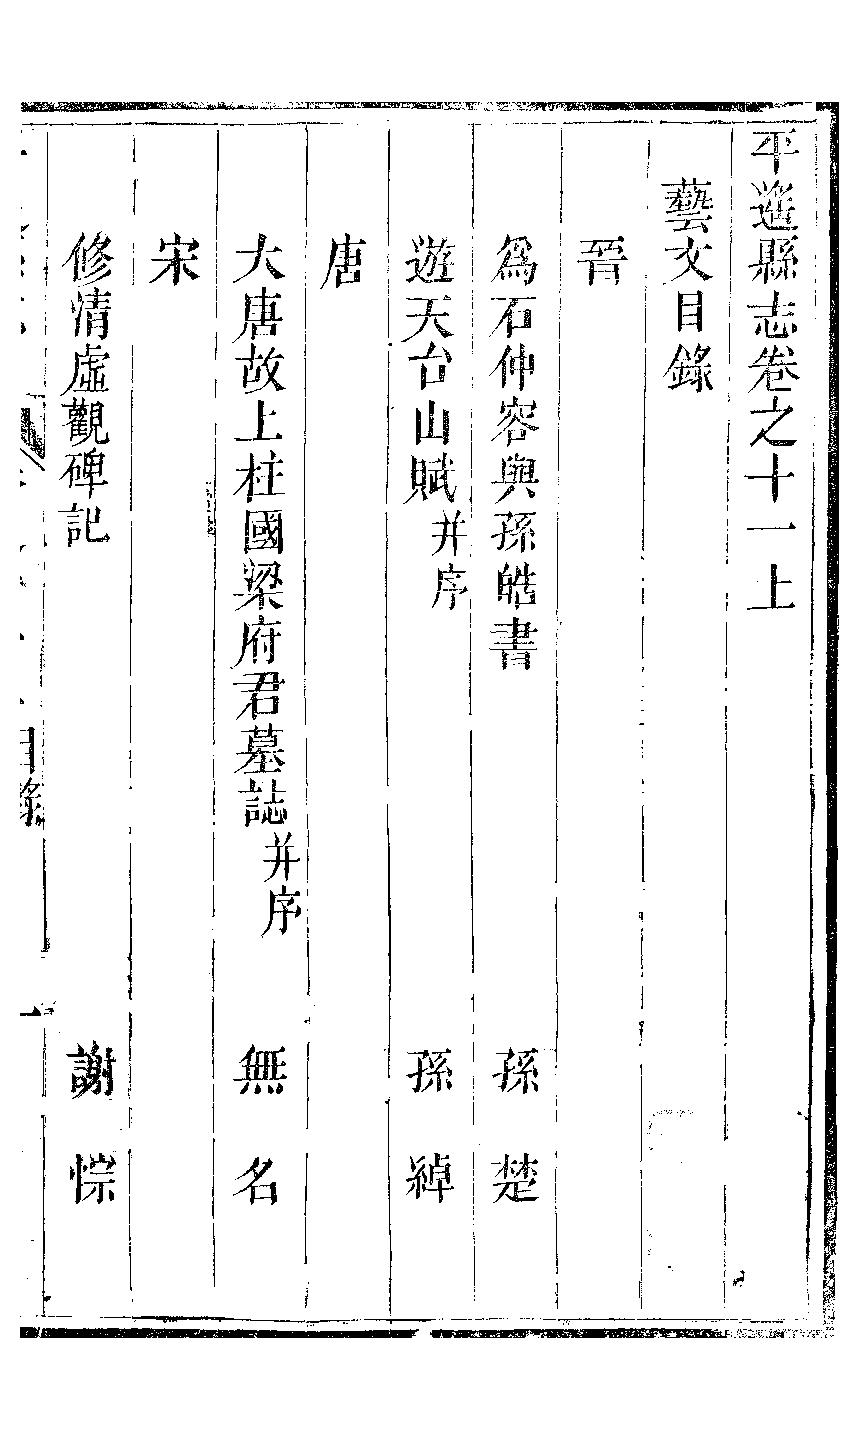 平遙縣志卷之十一上
藝文目錄
晉
為石仲容與孫皓書 孫楚
遊天台山賦 并序 孫綽
唐
大唐故上柱國梁府君墓誌 并序 無名
宋
修清虛觀碑記 謝悰
目錄